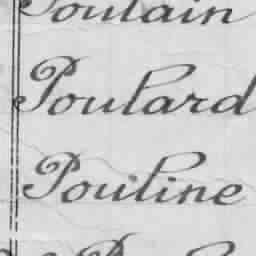 Poulain
Poulard
Pouline